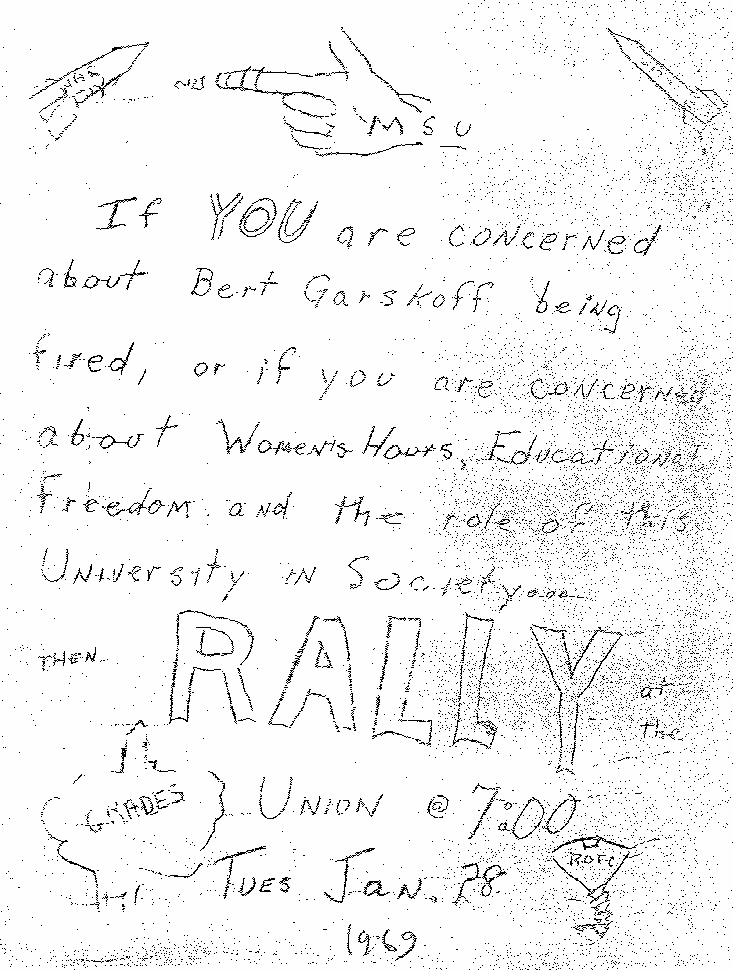 MSU
If YOU are concerned
about Bert Garskoff being
fired, or if you are concerned
about Women's Hours, Educational
Freedom and the role of this
University in Society....
THEN RALLY at
the
GRADES
UNION @ 7:00
TUES JAN. 28
ROTC
1969